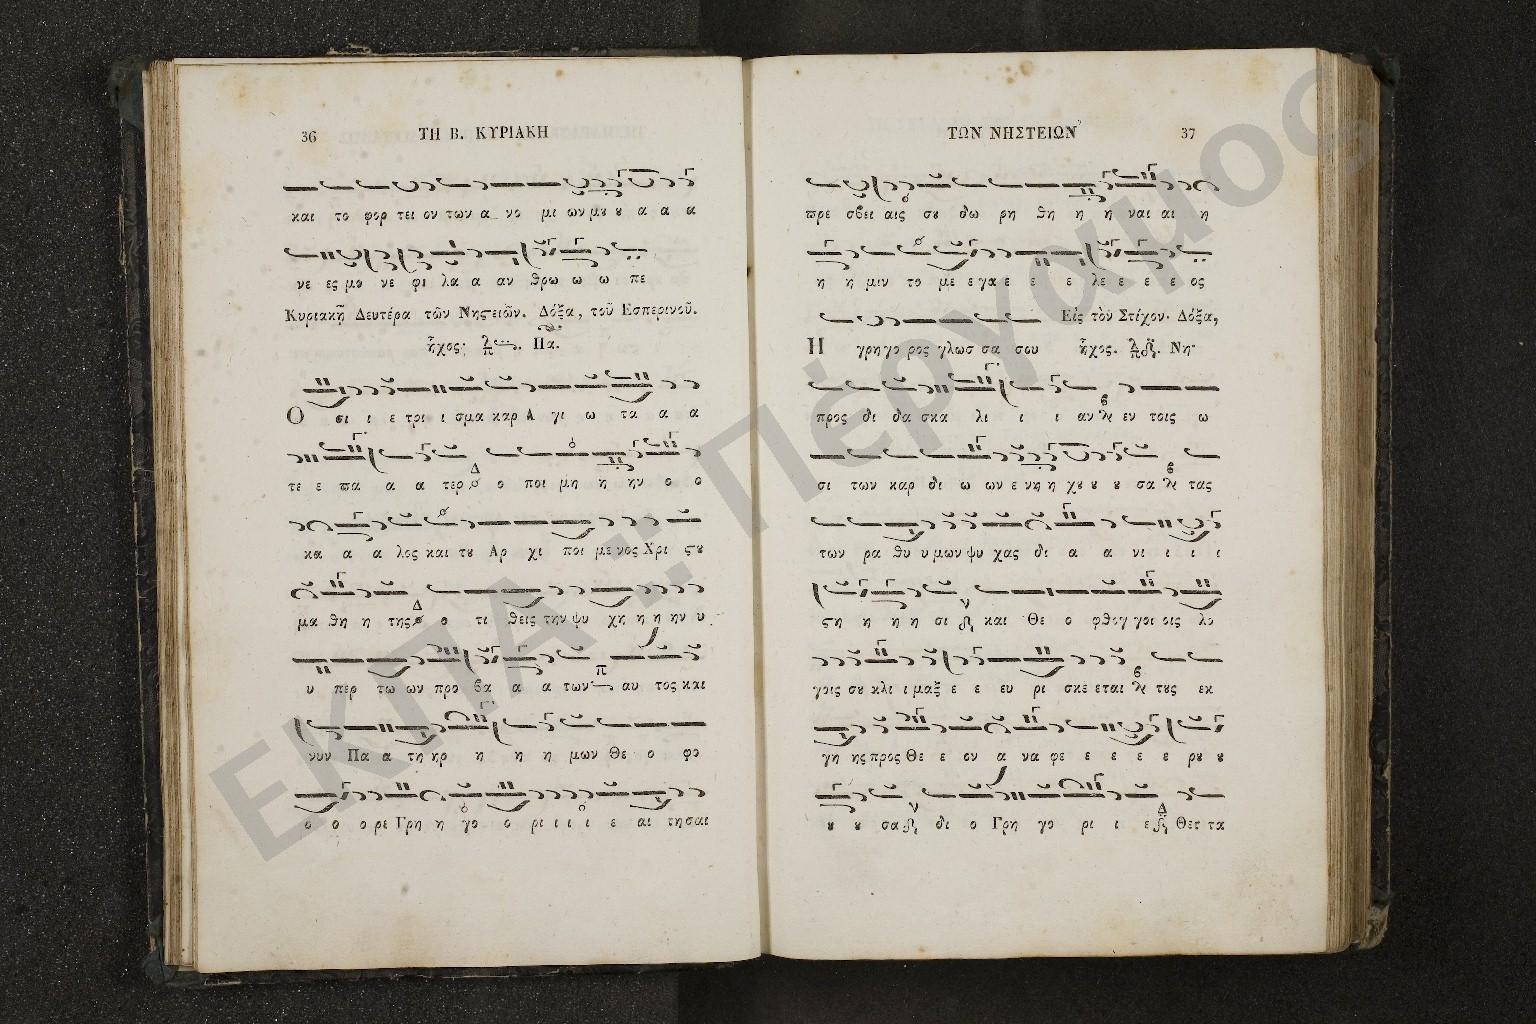 36 ΤΗ Β. ΚΥΡΙΑΚΗ
και το φορ τει ον των α νο μι ων μου ου α α α
νε ες μο νε φι λα α αν θρω ω ω πε
Κυριακῇ Δευτέρα τῶν Νηστειῶν. Δόξα, τοῦ Εσπερινοῦ.
ἦχος; Πα.
Ο σι ι ε τρι ι σμα καρ Α γι ω τα α α
τε ε πα α α τερ ο ποι μη η ην ο ο
κα α α λος και του Αρ χι ποι με νος Χρι στου
μα θη η της ο τι θεις την ψυ χη η η ην υ
υ περ τω ων προ βα α α των αυ τος και
νυν Πα α τη ηρ η η η μων Θε ο φο
ο ο ο ρε Γρη η γο ο ρι ι ι ι ε αι τησαι
ΤΩΝ ΝΗΣΤΕΙΩΝ 37
πρε σβει αις σου δω ρη θη η η ναι αι η
η η μιν το με ε γα ε ε ε λε ε ε ε ος
Εἰς τὸν Στίχον. Δόξα,
Η γρηγο ρος γλωσ σα σου ἦχος. Νη
προς δι δα σκα λι ι ι αν εν τοις ω
σι των καρ δι ω ων ε νη η χου ου ου σα τας
των ρα θυ υ μων ψυ χας δι α α νι ι ι ι
στη η η η σι και Θε ο φθογ γοι οις λο
γοις σου κλι ι μαξ ε ε ευ ρι σκε εται τους εκ
γη ης προς Θε ε ον α να φε ε ε ε ε ρου ου
ου ου σα δι ο Γρη γο ρι ι ε Θετ τα
ΕΚΠΑ :: Πέργαμος